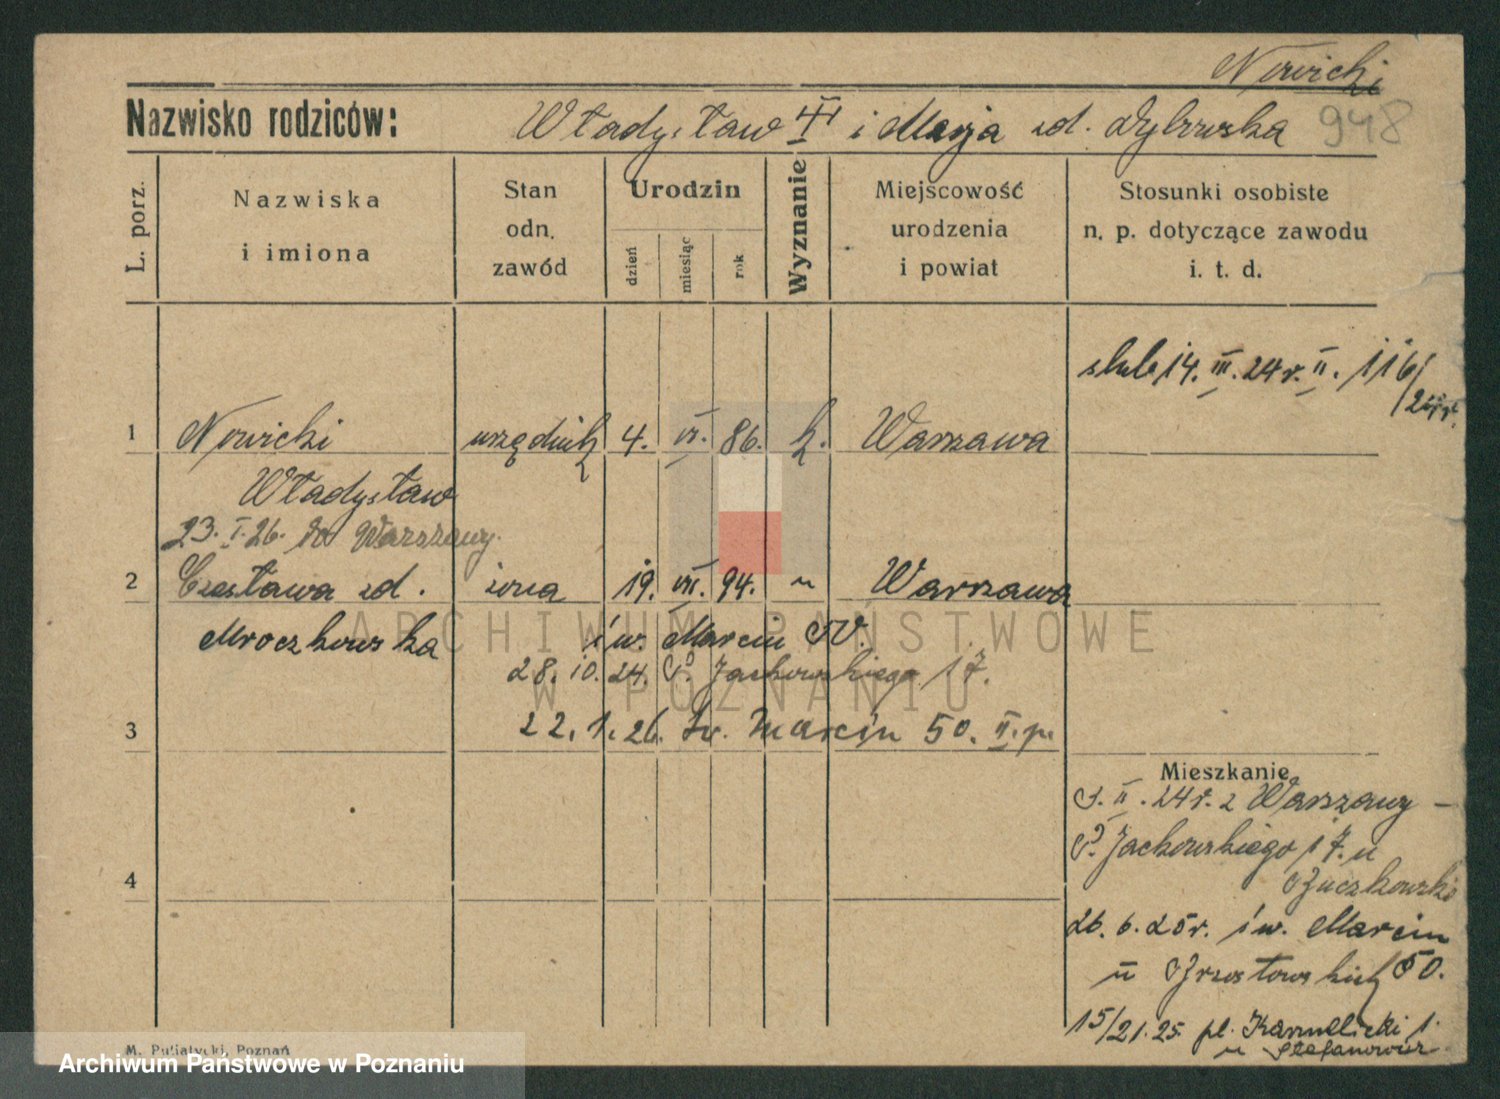 Nowicki
Nazwisko rodziców: Władysław i Marja zd. Dybowska 948
L. porz.
Nazwiska
i imiona
Stan
odn.
zawód
Urodzin
dzień
miesiąc
rok
Wyznanie
Miejscowość
urodzenia
i powiat
Stosunki osobiste
n. p. dotyczące zawodu
i. t. d.
ślub 14. III. 24 r. II. 116/24 r.
1 Nowicki urzędnik 4. VI. 86. k. Warszawa
Władysław
23. I. 26. do Warszawy.
2 Czesława zd. żona 19. VII. 94. " Warszawa
Mroczkowska
św. Marcin
28. 10. 24. P. Jackowskiego 17.
3 22. 1. 26. Św. Marcin 50. II. p.
Mieszkanie
II. 24 r. z Warszawy -
P. Jackowskiego 17. u
26. 6. 25 r. św. Marcin
u 50.
4
15/ 21. 25. pl. Karmelicki 1.
u Stefanowicz
M. Putiatycki, Poznań
ARCHIWUM PAŃSTWOWE
W POZNANIU
Archiwum Państwowe w Poznaniu